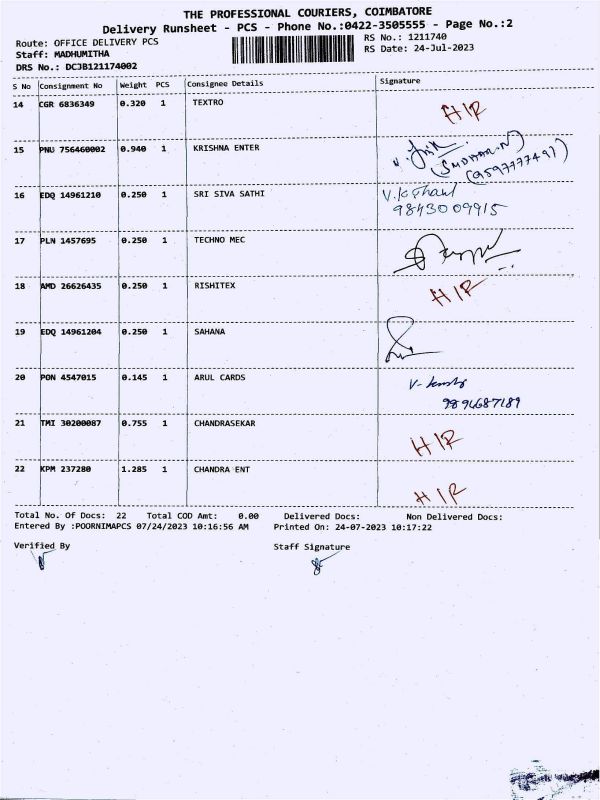 THE PROFESSIONAL COURIERS, COIMBATORE
Delivery Runsheet - PCS - Phone No.:0422-3505555 - Page No.:2
Route: OFFICE DELIVERY PCS
Staff: MADHUMITHA
DRS No.: DCJB121174002
RS No.: 1211740
RS Date: 24-Jul-2023
S No Consignment No Weight PCS Consignee Details Signature
14 CGR 6836349 0.320 1 TEXTRO HIR
15 PNU 756460002 0.940 1 KRISHNA ENTER
(9597777497)
16 EDQ 14961210 0.250 1 SRI SIVA SATHI
9843009915
17 PLN 1457695 0.250 1 TECHNO MEC
18 AMD 26626435 0.250 1 RISHITEX HIR
19 EDQ 14961204 0.250 1 SAHANA
20 PON 4547015 0.145 1 ARUL CARDS
9894687189
21 TMI 30200087 0.755 1 CHANDRASEKAR HIR
22 KPM 237280 1.285 1 CHANDRA ENT HIR
Total No. Of Docs: 22 Total COD Amt: 0.00 Delivered Docs: Non Delivered Docs:
Entered By :POORNIMAPCS 07/24/2023 10:16:56 AM Printed On: 24-07-2023 10:17:22
Verified By Staff Signature